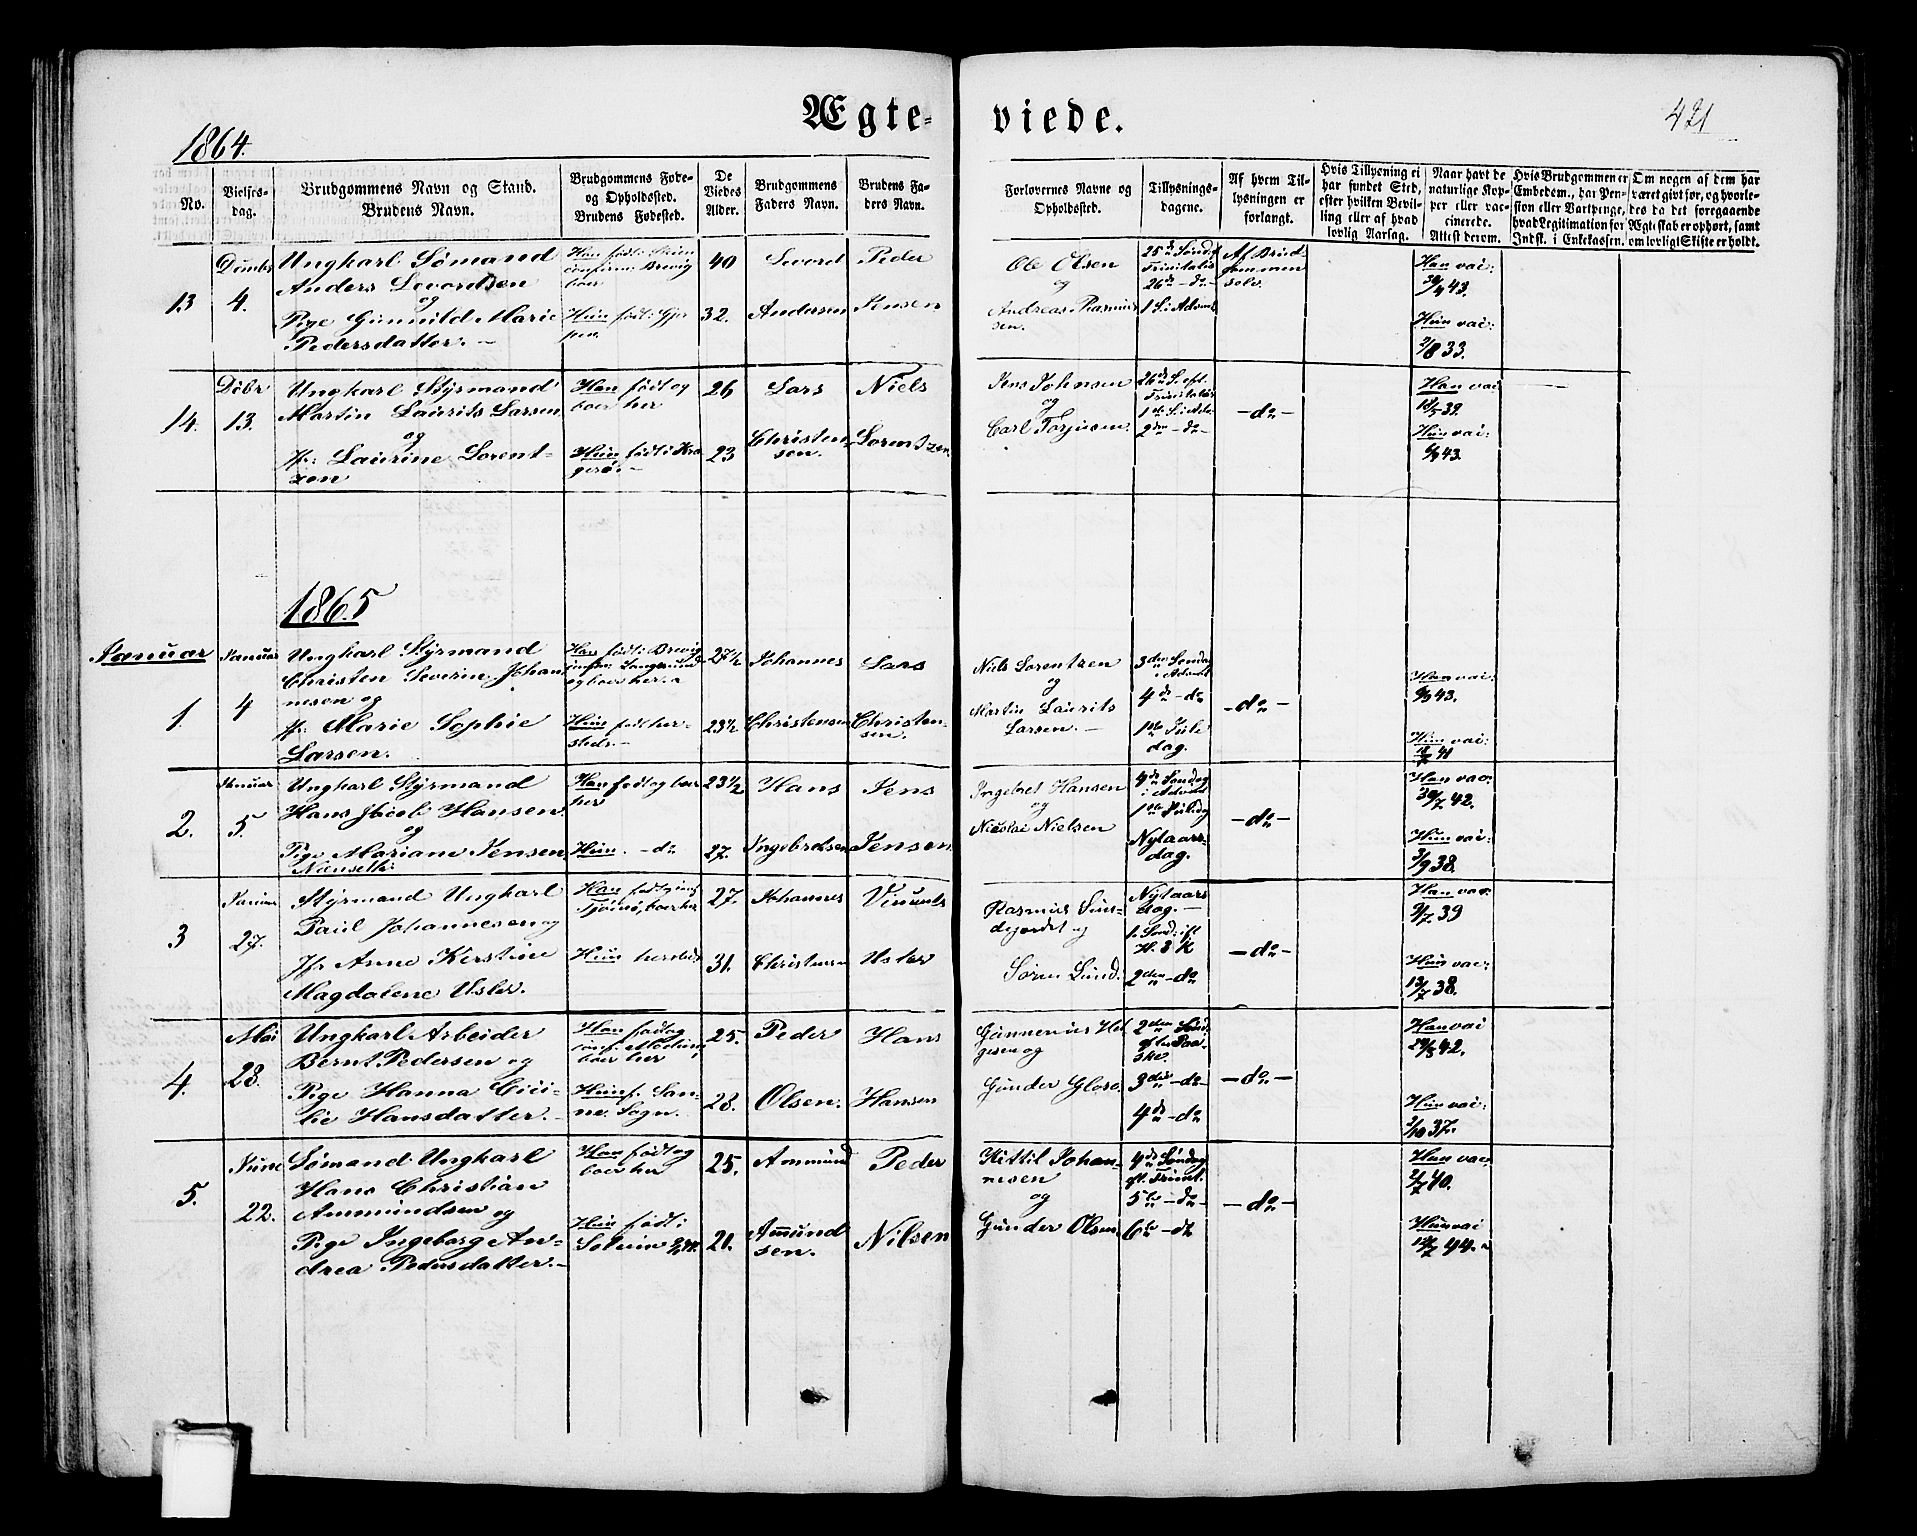 Ægte-
viede.
421
1864.
No.
Vielses-
dag.
Brudgommens Navn og Stand.
Brudens Navn.
Brudgommens Føde-
og Opholdssted.
Brudens Fødested.
De
Viedes
Alder.
Brudgommens
Faders Navn.
Brudens Fa-
ders Navn.
Forlovernes Navne og
Opholdssted.
Tillysnings-
dagene.
Af hvem Til-
lysningen er
forlangt.
Hvis Tillysning ei
har fundet Sted,
efter hvilken Bevil-
ling eller af hvad
lovlig Aarsag.
Naar havt de
naturlige Kop-
per eller vac-
cinerede.
Attest derom.
Hvis Brudgommen er
Embedsm., har Pen-
sion eller Vartpenge,
hvad Legitimation for
Indsk. i Enkekassen.
Om nogen af dem har
været gift før, og hvorle-
des da det foregaaende
Ægteskab er ophørt, samt
om lovligt Skifte er holdt.
13
4.
Ungkarl Sømand
Anders
og
Pige Gunnild Marie
Pedersdatter. -
Han født: Skien
confirm: Brevig
boer
Hun født: Gjer-
pen.
40
32.
Sivord
Andersen
Peder
Jensen
Ole Olsen
og
Andreas Rasmus-
sen.
25de Søndag
Trinitatis
26de -do-
1 S. i Advent
Af Brud-
gommen
selv.
Han vac:
43.
Hun vac:
2/8 33.
14.
Debr
13.
Ungkarl Styrmand
Martin Laurits Larsen
og
Jfr: Laurine Lorent-
zen
Han født og
boer her
Hun født i Kra-
gerø. -
26
23
Lars
Christen-
sen.
Niels
Lorentzen.
Jens Johnsen
og
Carl Torjusen.
26de S. eft.
Trinitatis
1ste S. i Adv.
2den -do-
-do-
Han vac:
18/5 39.
Hun vac:
43.
1865
Januar
1.
Januar
4
Ungkarl Styrmand
Christen Severin Johan-
nesen og
Jfr: Marie Sophie
Larsen.
Han født: Brevig
confirm: Langesund
og boer her.
Hun født her-
steds. -
27 1/2
23 1/2
Johannes
Christensen
Lars
Christen-
sen.
Niels Lorentzen
og
Martin Laurits
Larsen. -
3den Søndag
i Advent
4de -do
1ste Jule
dag.
-do-
Han vac:
43.
Hun vac:
41
2.
Januar
5.
Ungkarl Styrmand
Hans Jacob Hansen.
og
Pige Mariane Jensen
Han født og boer
her
Hun. -do
23 1/2
27.
Hans
Ingebretsen
Jens
Jensen
Ingebret Hansen
og
Nicolai Nielsen
4de Søndag
i Advent
1ste Juledag
Nytaars-
dag.
-do-
Han vac:
30/7 42.
Hun vac:
3/9 38.
3
Januar
27.
Styrmand Ungkarl
Paul Johannesen og
Jfr Anne Kirstine
Magdalene Usler.
Han født
Tjømø, boer her
Hun hersteds
27.
31.
Johannes
Christensen
Usler
Rasmus Sun-
djordet og
Søren Lund.
Nytaars
dag. -
1. Sønd. eft
H. 3 K
2den -do
-do-
Han vac:
39
Hun vac:
13/7 38.
4.
Mai
28.
Ungkarl Arbeider
Bernt Pedersen og
Pige Hanna Cici-
lie Hansdatter. -
Han født og
boer her
Hun f. San-
ne Sogn.
25.
28.
Peder
Olsen.
Hans
Hansen
Gunnerius Hel-
gesen og
Gunder
2den Sønd.
efter Paa-
ske.
3die -do-
4de -do
-do-
Han vac
42.
Hun vac:
2/10 37.
5.
June
22.
Sømand Ungkarl
Hans Christian
Ammundsen og
Pige Ingeborg An-
drea Pedersdatter. -
Han født og
boer her
Hun født i
25.
21.
Ammund
Amund
sen.
Peder
Nilsen
Kittil Johan-
nesen
og
Gunder Olsen.
4de Søndag
eft. Trinit.
5te -do-
6te -do
-do-
Han vac:
40.
Hun vac
44.